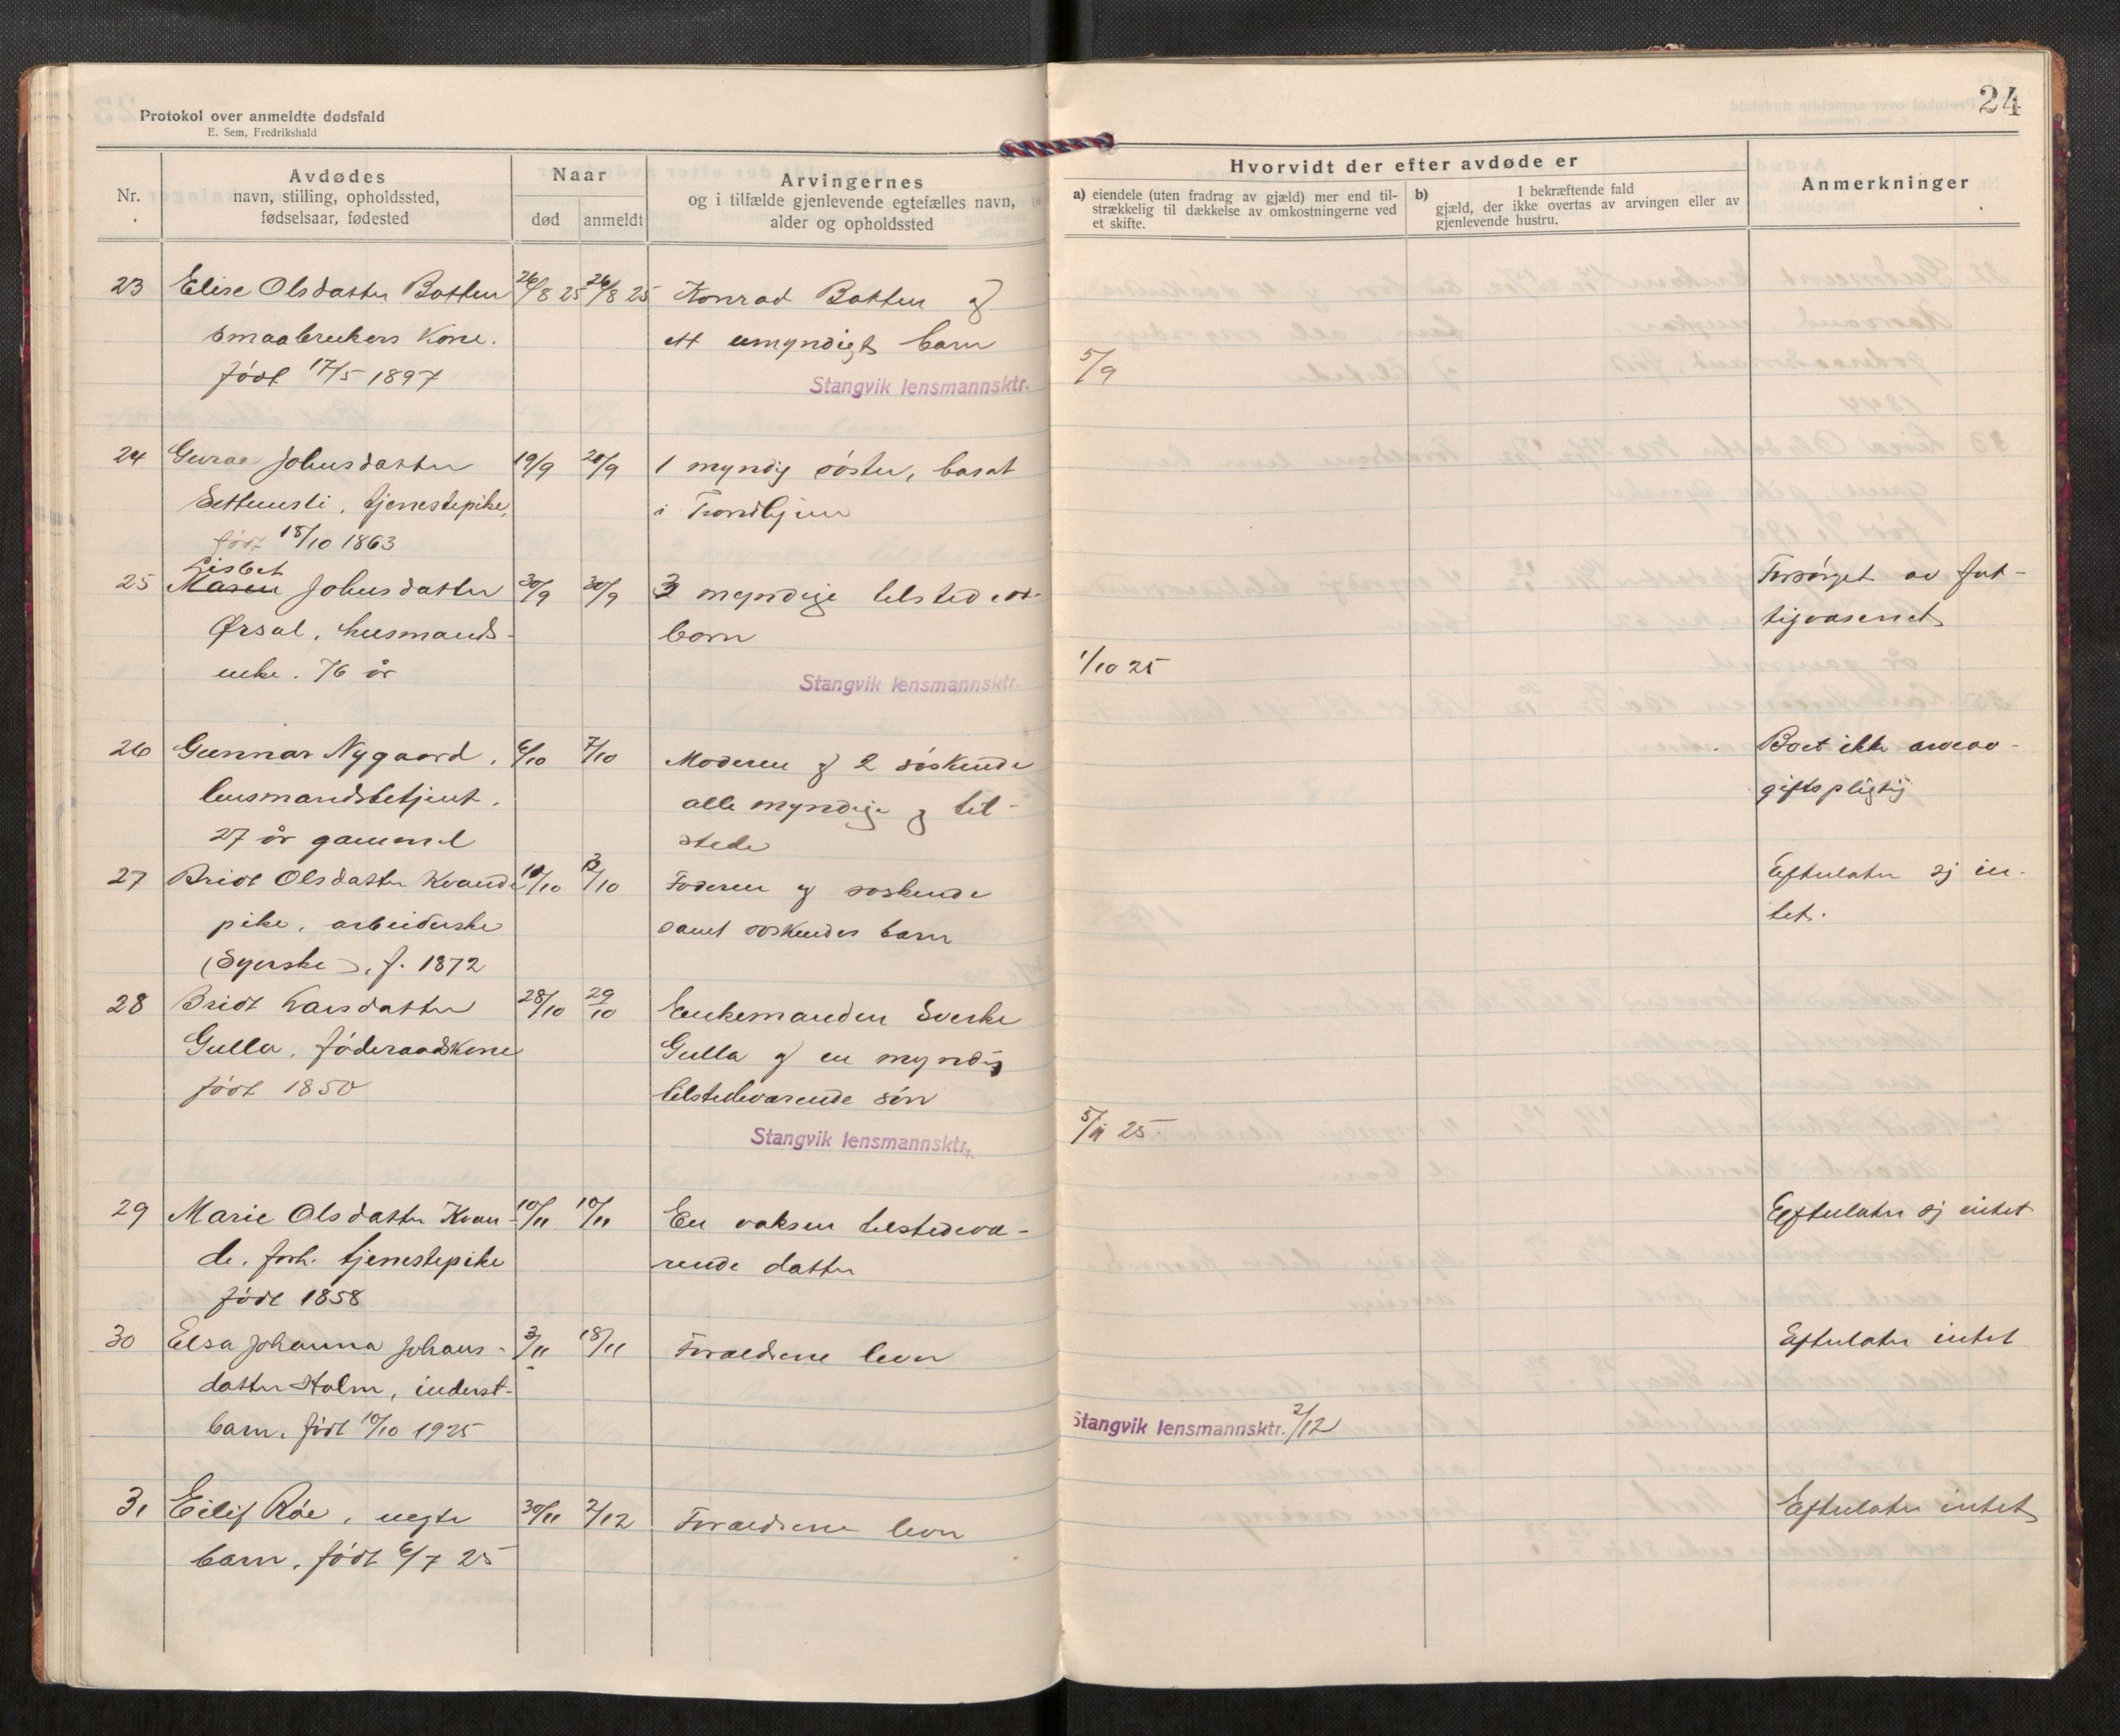 Protokol over anmeldte dødsfald
E. Sem, Fredrikshald
24
Nr.
Avdødes
navn, stilling, opholdssted,
fødselsaar, fødested
Naar
død
anmeldt
Arvingernes
og i tilfælde gjenlevende egtefælles navn,
alder og opholdssted
Hvorvidt der efter avdøde er
a) eiendele (uten fradrag av gjæld) mer end til-
strækkelig til dækkelse av omkostningerne ved
et skifte.
b) I bekræftende fald
gjæld, der ikke overtas av arvingen eller av
gjenlevende hustru.
Anmerkninger
23 Elise Olsdatter Botten 26/8 25 26/8 25 Konrad Botten og
smaabrukers kone. ett umyndigt barn
født 17/5 1897
Stangvik lensmannsktr. 5/9
24 Guraa Johnsdatter 19/9 20/9 1 myndig søster, bosat
Settemsli, tjenestepike, i Trondhjem
født 18/10 1863
Lisbet
25 Maren Johnsdatter 30/9 30/9 3 myndige tilstedev.
Forsørget av fat-
Ørsal, husmands- born
tigvæsenet
enke. 76 år
Stangvik lensmannsktr. 1/10 25
26 Gunnar Nygaard, 6/10 7/10 Moderen og 2 søskende
Boet ikke arveav-
lensmandsbetjent, alle myndige og til-
giftspligtig
27 år gammel stede
27 Bridt Olsdatter Kvande 10/10 /10 Faderen og søskende
Efterlater sj in-
pike, arbeiderske samt søskendes barn
tet.
(Syerske), f. 1872
28 Bridt Larsdatter 28/10 29/10 Enkemanden Sverke
Gulla, føderaadskone Gulla og en myndig
født 1850 tilstedeværende søn
Stangvik lensmannsktr. 5/11 25.
29 Marie Olsdatter Kvan- 10/11 10/11 En voksen tilstedevæ-
Efterlater sj intet
de, forh. tjenestepike rende datter
født 1858
30 Elsa Johanna Johans- 3/11 18/11 Forældrene lever
Efterlater intet
datter Holm, inderst-
barn, født 10/10 1925
Stangvik lensmannsktr. 2/12
31 Eilif Røe, uegte 30/11 2/12 Forældrene lever
Efterlater intet
barn, født 6/7 25